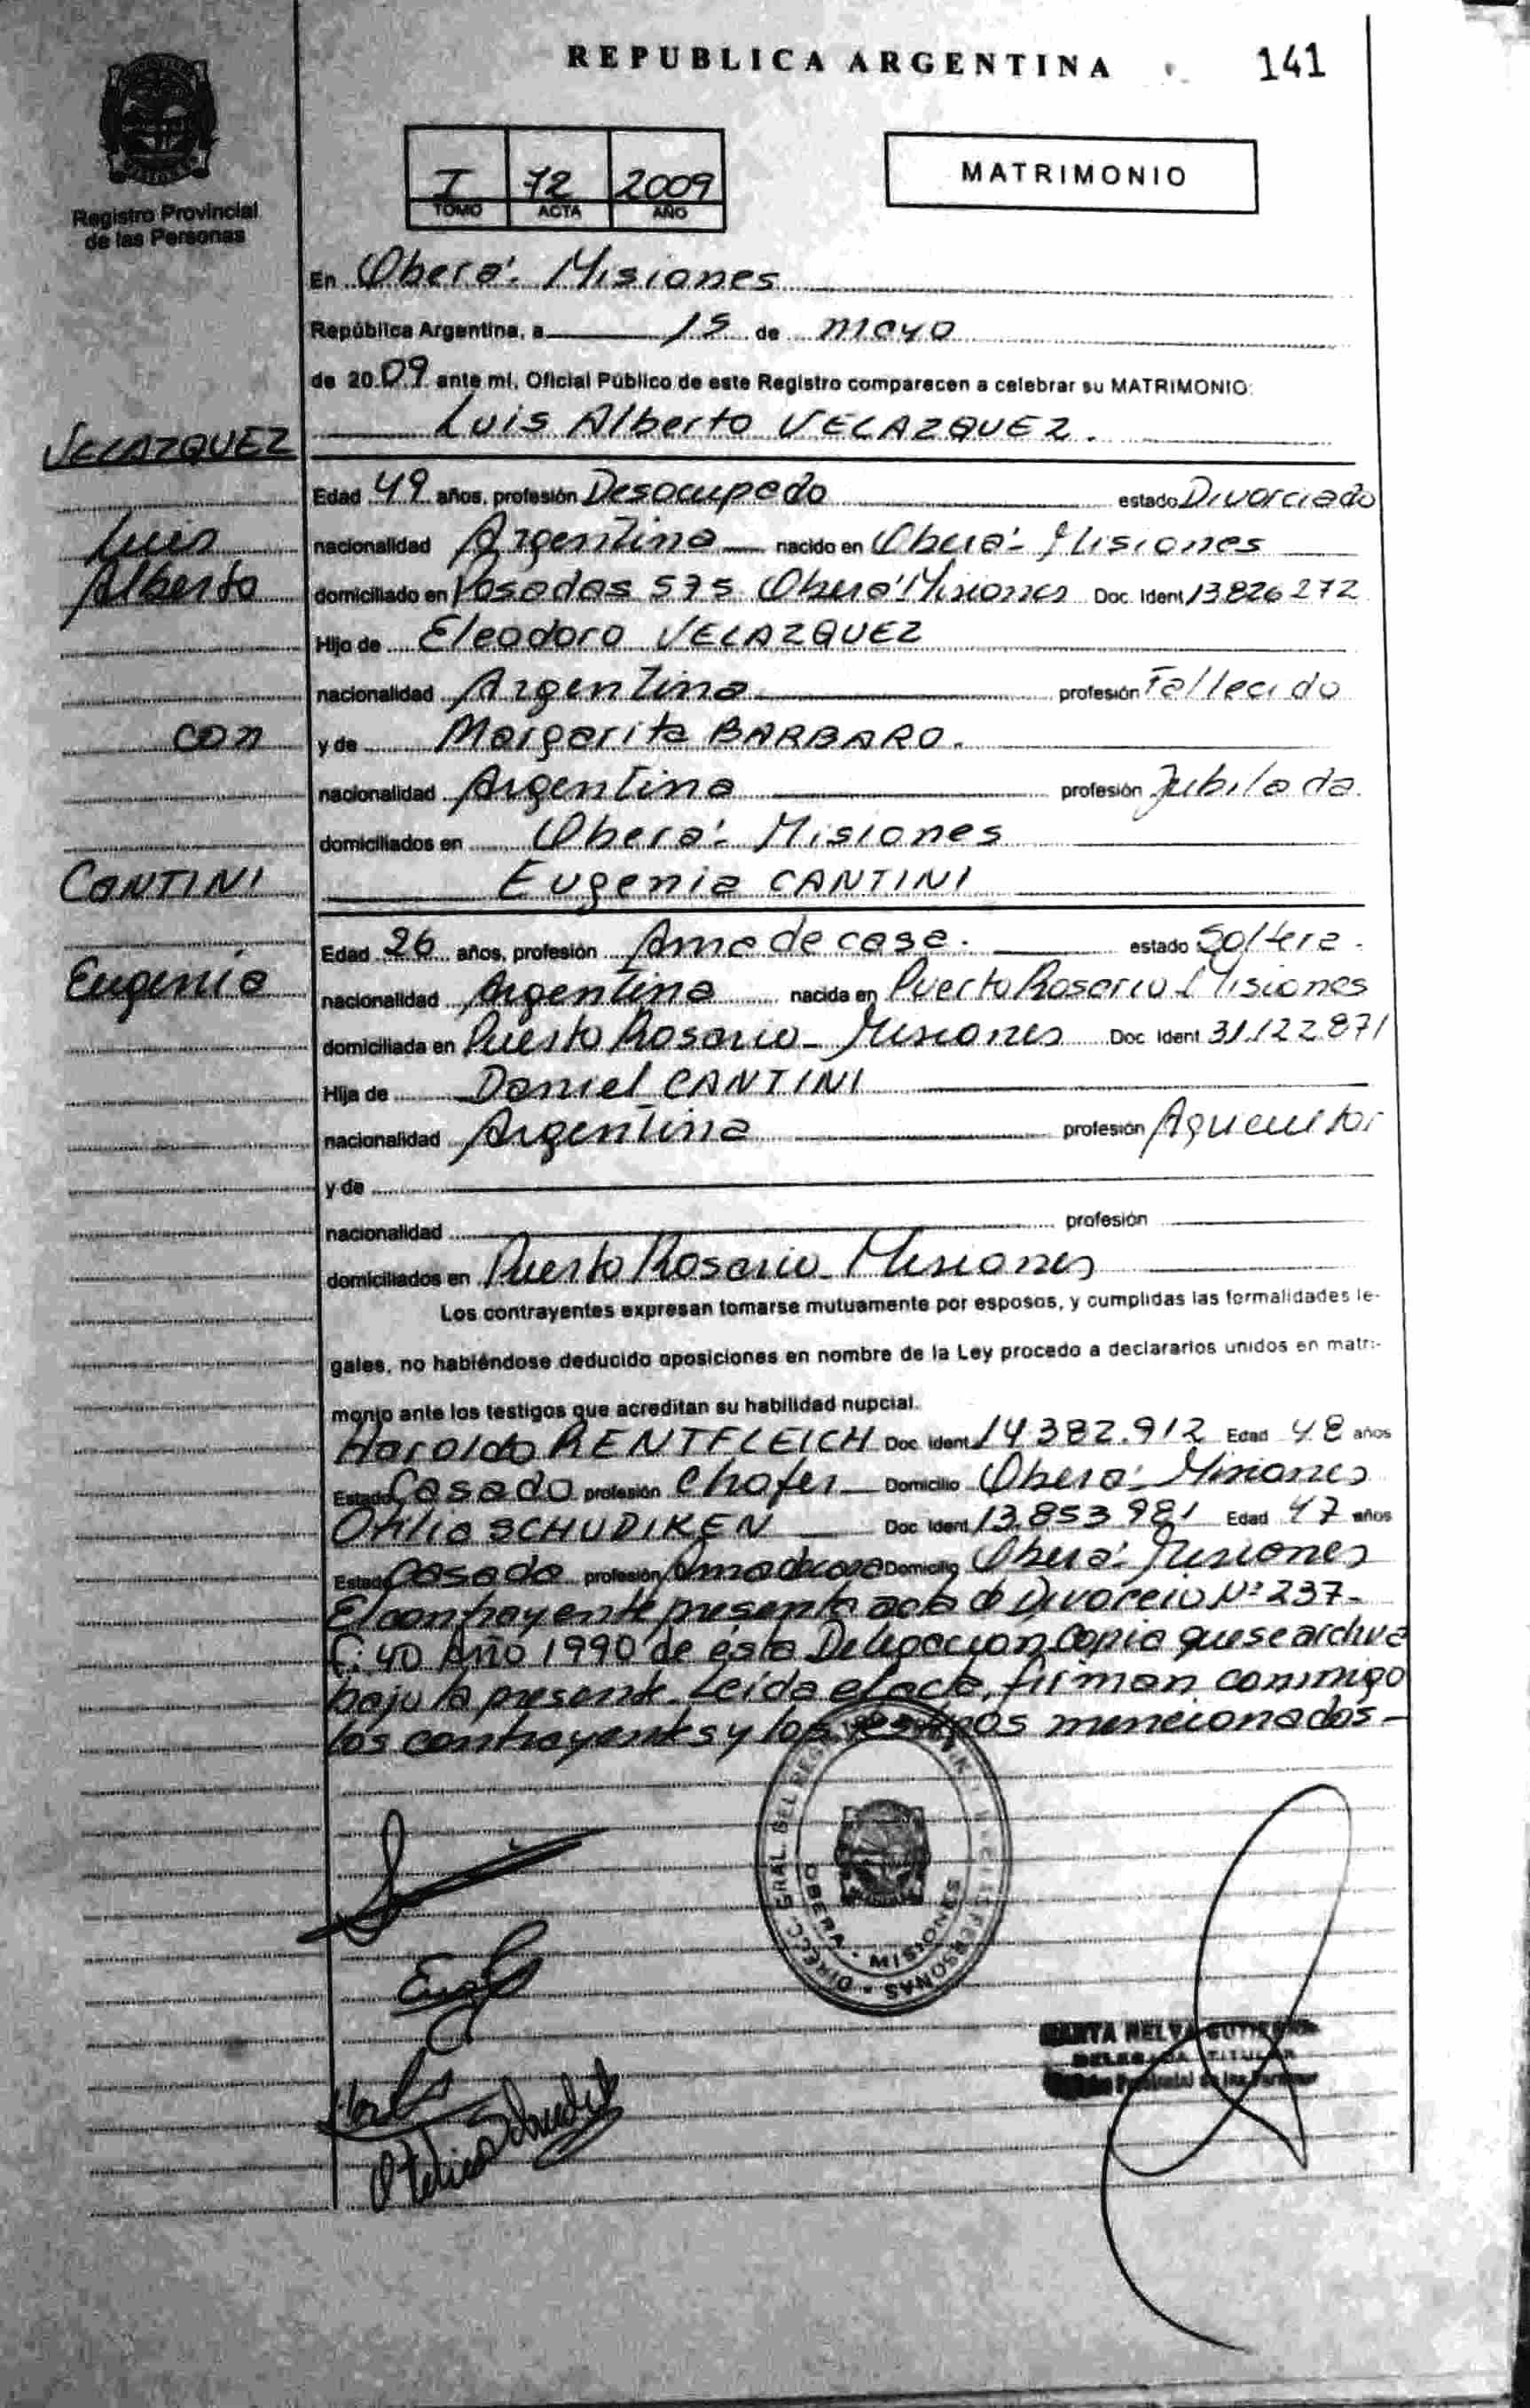 REPUBLICA ARGENTINA 141
Registro Provincial
de las Personas
I 72 2009
TOMO ACTA AÑO
MATRIMONIO
En Oberá: Misiones
República Argentina, a 15 de mayo
de 2009 ante mí, Oficial Público de este Registro comparecen a celebrar su MATRIMONIO:
VELAZQUEZ
Luis Alberto VELAZQUEZ.
Edad 49 años, profesión Desocupado estado Divorciado
Luis
nacionalidad Argentina nacido en Oberá - Misiones
Alberto
domiciliado en Posadas 575 Oberá Misiones Doc. Ident 13.826.272
Hijo de Eleodoro VELAZQUEZ
nacionalidad Argentina profesión Fallecido
con
y de Margarita BARBARO.
nacionalidad Argentina profesión Jubilada
domiciliados en Oberá: Misiones
CANTINI
Eugenia CANTINI
Edad 26 años, profesión Ama de casa. estado Soltera.
Eugenia
nacionalidad Argentina nacida en Puerto Rosario Misiones
domiciliada en Puerto Rosario - Misiones Doc. Ident 31.122.871
Hija de Daniel CANTINI
nacionalidad Argentina profesión Agricultor
y de
nacionalidad profesión
domiciliados en Puerto Rosario - Misiones
Los contrayentes expresan tomarse mutuamente por esposos, y cumplidas las formalidades le-
gales, no habiéndose deducido oposiciones en nombre de la Ley procedo a declararlos unidos en matri-
monio ante los testigos que acreditan su habilidad nupcial.
Haroldo RENTFLEICH Doc. Ident 14.382.912 Edad 48 años
Estado Casado profesión Chofer Domicilio Oberá: Misiones
Otilia SCHUDIKEN Doc. Ident 13.853.981 Edad 47 años
Estado Casada profesión Ama de casa Domicilio Oberá: Misiones
El contrayente presenta acta de Divorcio Nº 237-
F: 40 Año 1990 de ésta Delegacion Copia que se archiva
bajo la presente. Leída el acta, firman conmigo
los contrayentes y los testigos mencionados-
OBERA - MISIONES
DELEGADA TITULAR